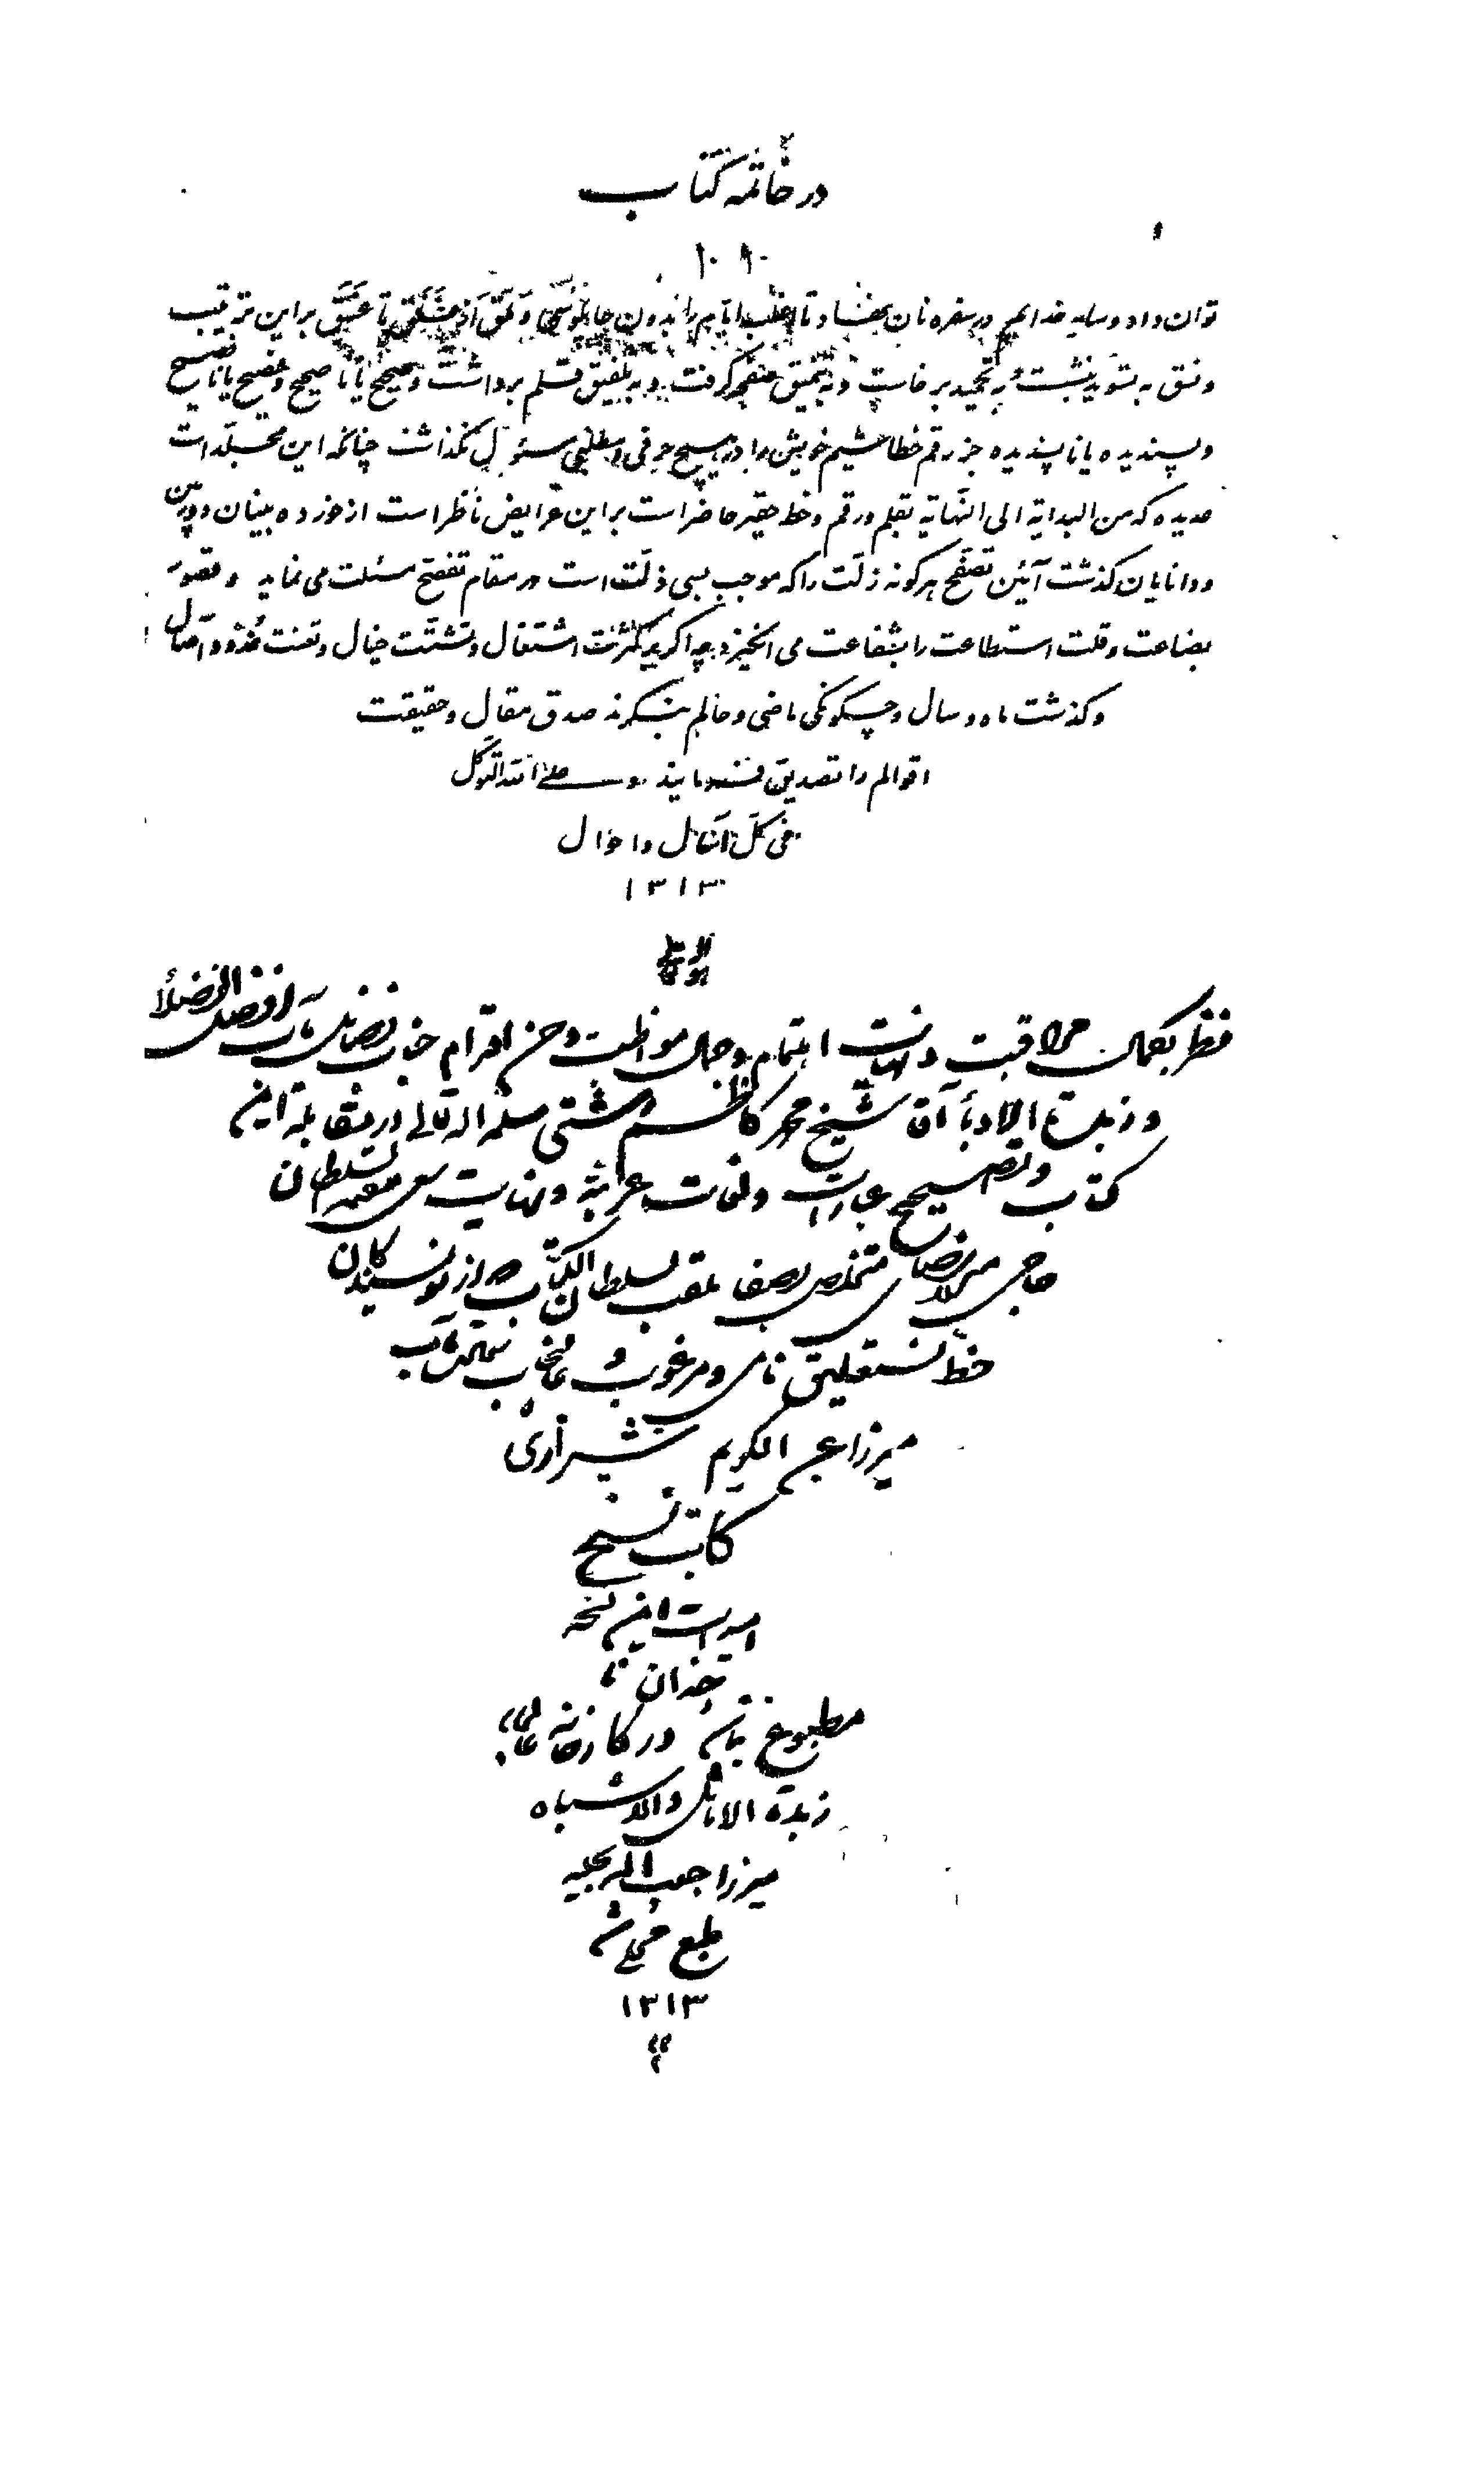 در خاتمه کتاب
توان داد و سایه خدائیم در سفره نان بخشاد تا اغلب ایام را بدون چاپلوسی و تملق براین ترتیب
و نسق به تسوید بنشست و به تحمید برخاست و به تنمیق برگرفت و به تلفیق قلم برداشت و صحیح یا ناصحیح و فصیح یا نافصیح
و پسندیده یا ناپسندیده جز رقم خطاشیم خویش را در هیچ حرفی و مطلبی مسئول نگذاشت چنانکه این مجلدات
عدیده که من البدایة الی النهایة بقلم و رقم و خط حقیر حاضر است براین عرایض ناظر است از خورده بینان دوربین
و دانایان گذشت آئین تصفح هرگونه زلت را که موجب بسی ذلت است در مقام تفصح مسئلت می نماید و قصور
بضاعت و قلت استطاعت را بشفاعت می انگیزد چه اگر بر کثرت اشتغال و تشتت خیال و غدو و آصال
و گذشت ماه و سال و چگونگی ماضی و حالم بنگرند صدق مقال و حقیقت
اقوالم را تصدیق فرمایند و علی الله التوکل
فی کل الافعال و احوال
۱۳۱۳
هو الله تعالی
بکمال مراقبت و نهایت اهتمام و جمال مواظبت و حسن اقدام جناب فضایل مآب افضل الفضلا
و زبدة الادبا آقا شیخ محمد کاظم رشتی سلمه الله تعالی در مقابله این
کتاب و تصحیح عبارات و لغات عربیه و نهایت سعی معتمد السلطان
حاجی میرزا رضای متخلص بصفا ملقب بسلطان الکتاب در نویسانیدن
خط نستعلیق نامی و مرغوب و عالیجناب
میرزا عبد الکریم شیرازی
کاتب نسخ
امید است این نسخه
مطبوع در کارخانه
زبدة الاماثل و الاشباه
میرزا حبیب الله بحلیه
طبع محلی شد
۱۳۱۳